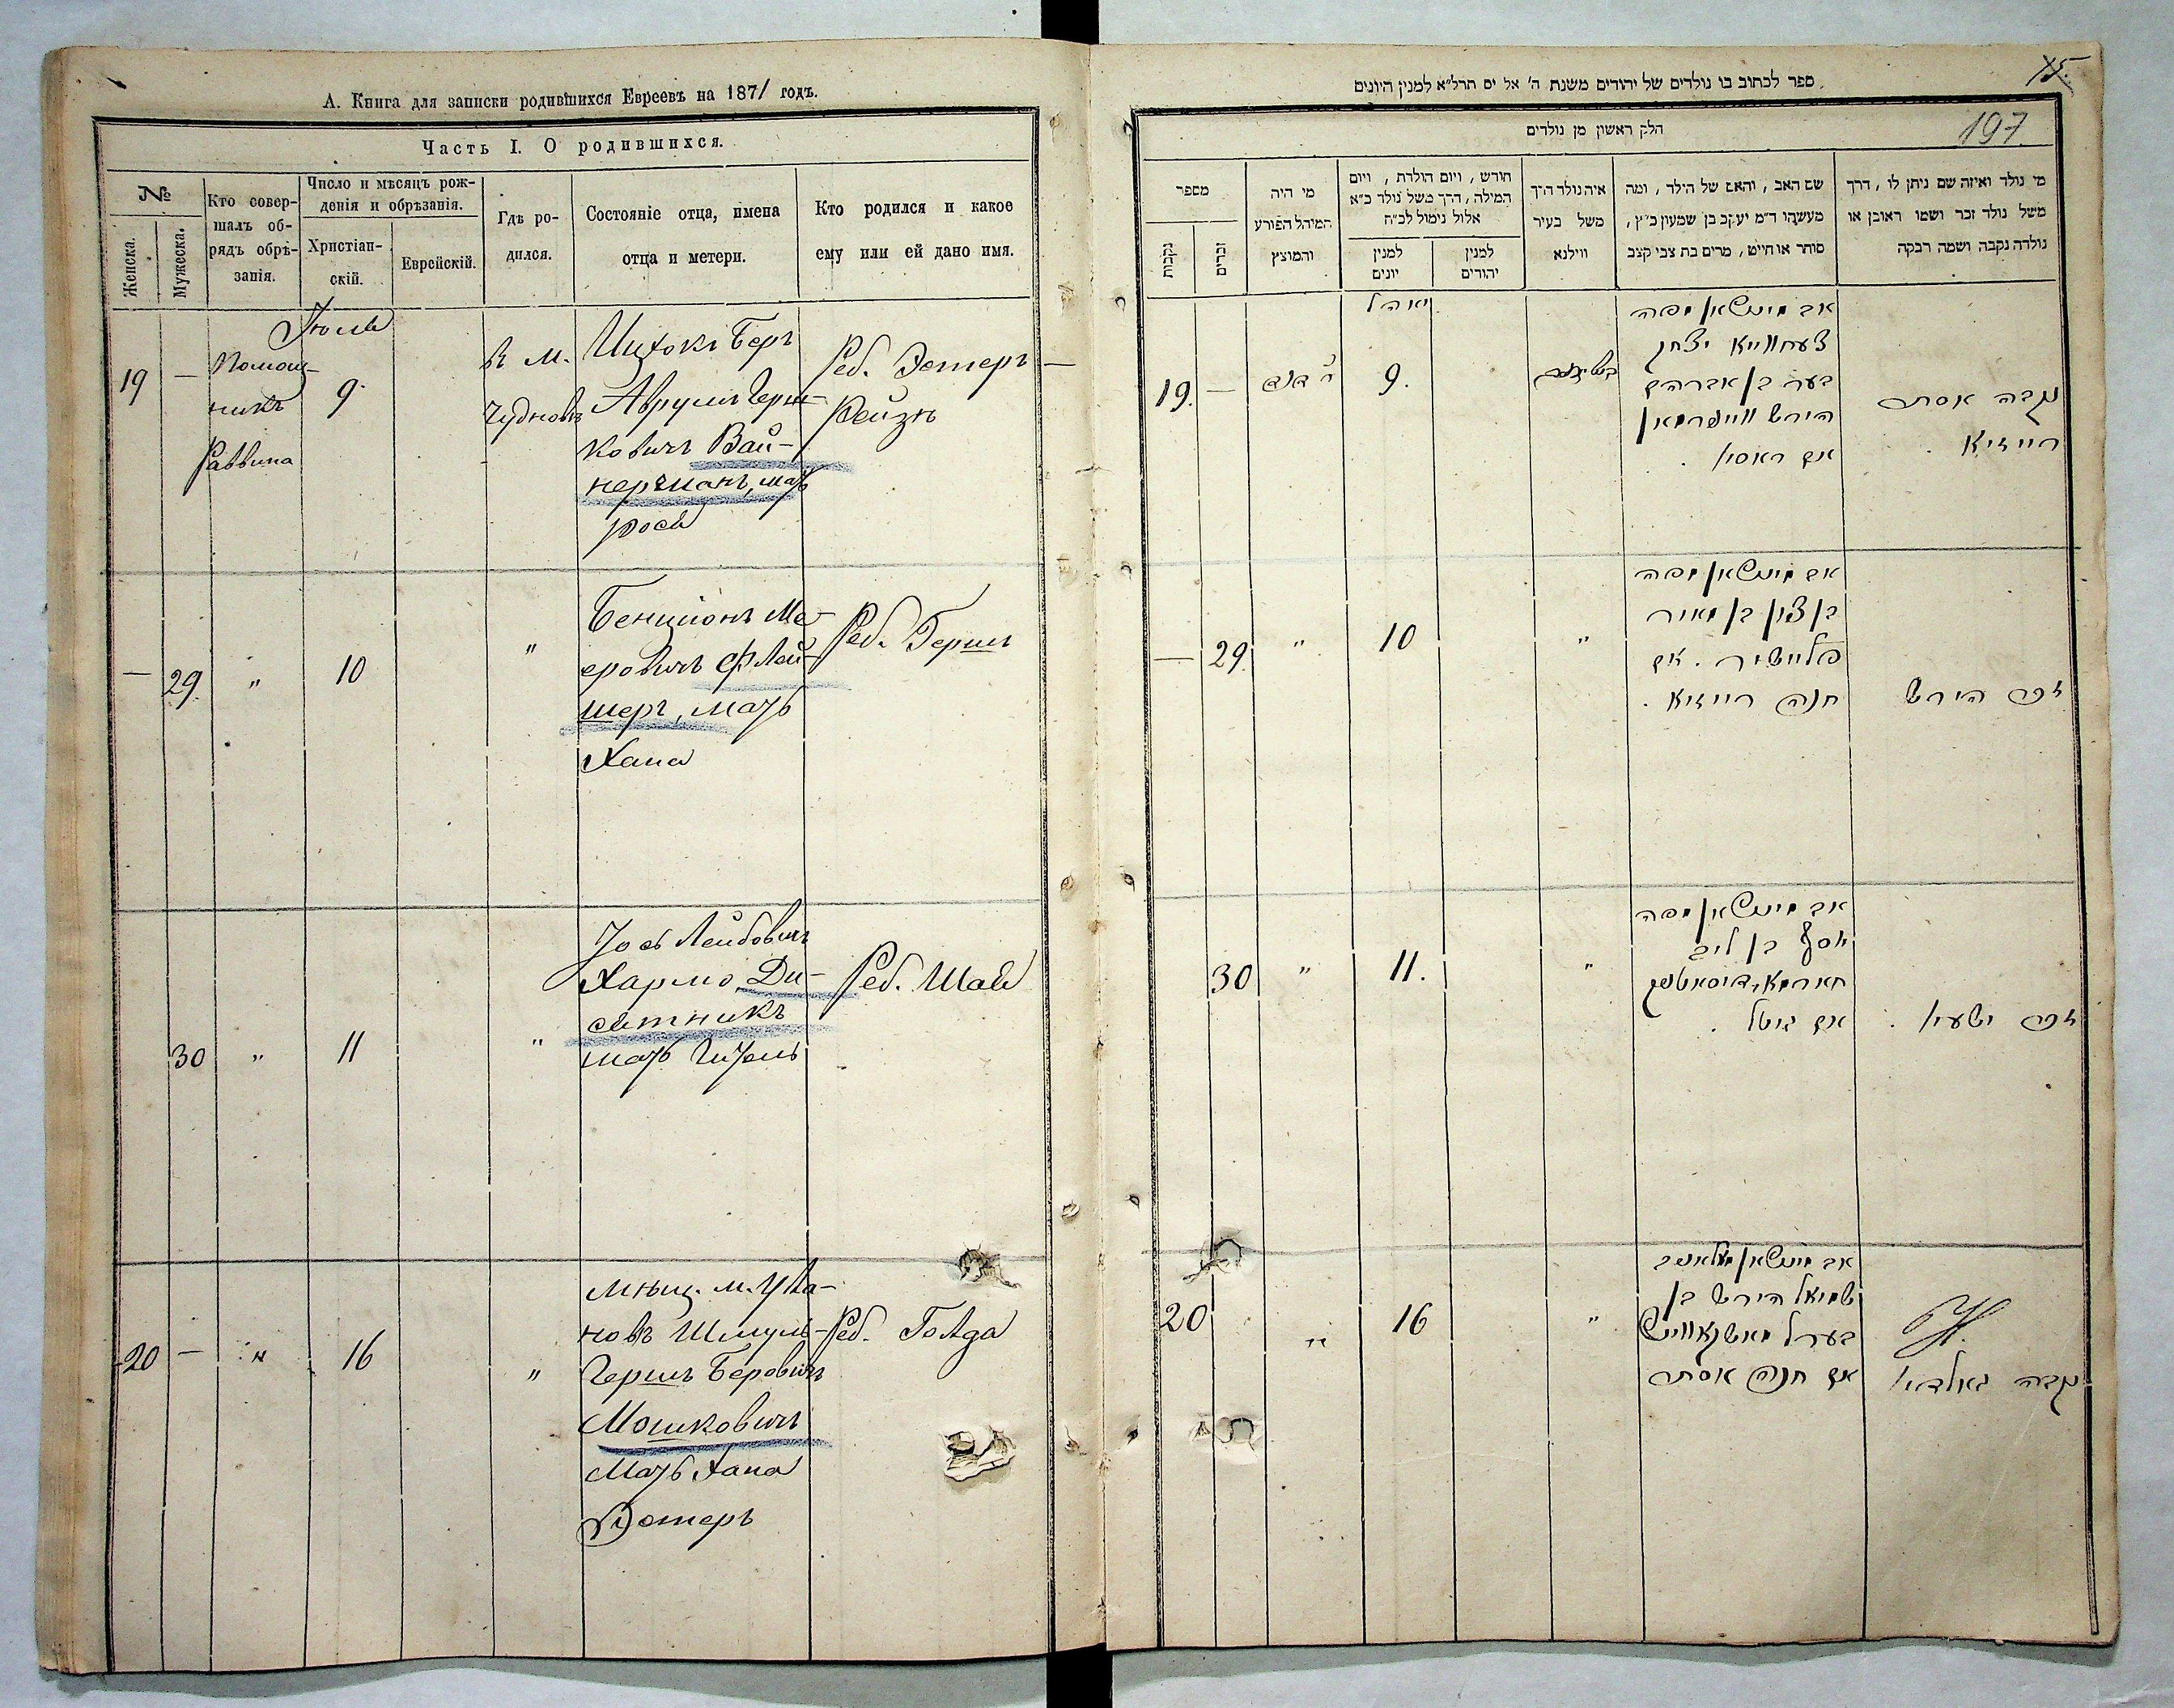 А. Книга для записки родившихся Евреевъ на 1871 годъ.
Часть I. О родившихся.
№
Женска.
Мужеска.
Кто совер-
шалъ об-
рядъ обрѣ-
занія.
Число и мѣсяцъ рож-
денія и обрѣзанія.
Христіан-
скій.
Еврейскій.
Гдѣ ро-
дился.
Состояніе отца, имена
отца и метери.
Кто родился и какое
ему или ей дано имя.
Іюль
19
—
Помощ-
никъ
Раввина
9
в м.
Чудновѣ
Ицхокъ Беръ
Аврумъ Герш-
ковичъ Вай-
нерманъ, мать
Рося
Реб. Эстеръ
Рейзя
—
29.
"
10
"
Бенціонъ Ме-
еровичъ Флей-
шеръ, мать
Хана
Реб. Гершъ
30
"
11
"
Іось Лейбовичъ
мать
Реб. Шая
20
—
"
16
"
Мѣщ. м.
новъ Шмуль-
Гершъ Беровичъ
Мошковичъ
Мать Хана
Эстеръ
Реб. Голда
15.
197
ספר לכתוב בו נולדים של יהודים משנת ה' אל ים תרל״א למנין היונים
חלק ראשון מן נולדים
מספר
נקבות
זכרים
מי היה
המיהל הפורע
והמוצץ
חודש, ויום הולדת, ויום
המילה, הדך משל נולד כ״א
אלול נימול לכ״ח
למנין
יונים
למנין
יהודים
איה נולד הדך
משל בעיר
ווילנא
שם האב, והאם של הילד, ומה
מעשהו ד״מ יעקב בן שמעון כ״ץ,
סוחר או חייט, מרים בת צבי קצב
מי נולד ואיזה שם ניתן לו, דרך
משל נולד זכר ושמו ראובן או
נולדה נקבה ושמה רבקה
יאהל
19.
—
9.
אב מינשאן מפה
יצחק
בער בן אברהם
הירש וויינערמאן
אם ראסיא
נקבה אסתר
רייזיא
—
29.
"
10
"
אב מינשאן מפה
בן ציון בן מאיר
פליישיר. אם
חנה רייזיא.
זכר הירש
30
"
11.
"
אב מינשאן מפה
יוסף בן ליב
אם גיטל.
זכר ישעיא
20
"
16
"
אב מינשאן
שמואל הירש בן
בערל מאשקאוויטש
אם חנה אסתר
נקבה גאלדיא